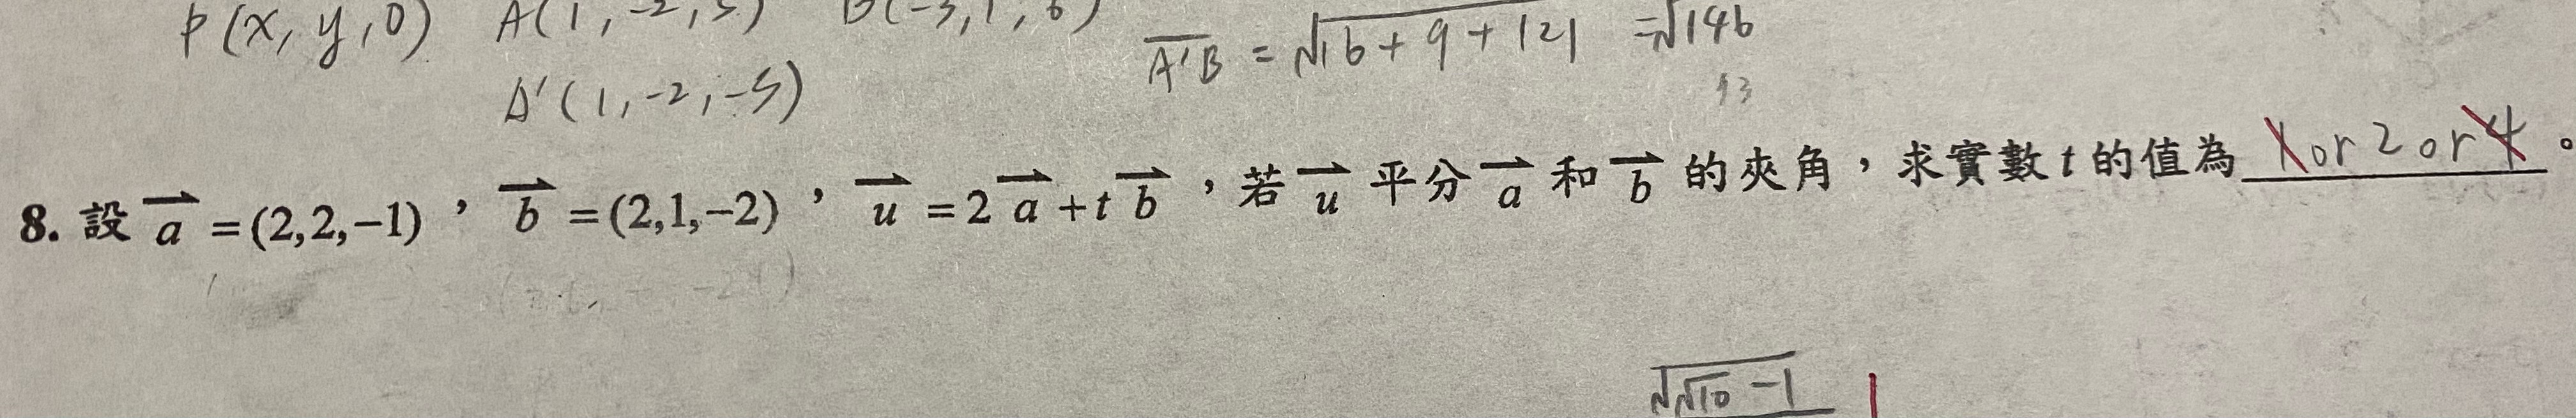 P(x, y, 0) A(1, -2, 5) B(-3, 1, 6)
A'B = √16+9+121 = √146
A'(1, -2, -5)
8. 設 a = (2,2,−1), b = (2,1,−2), u = 2a + t b, 若 u 平分 a 和 b 的夾角, 求實數 t 的值為 1 or 2 or 4 。
√√10 -1